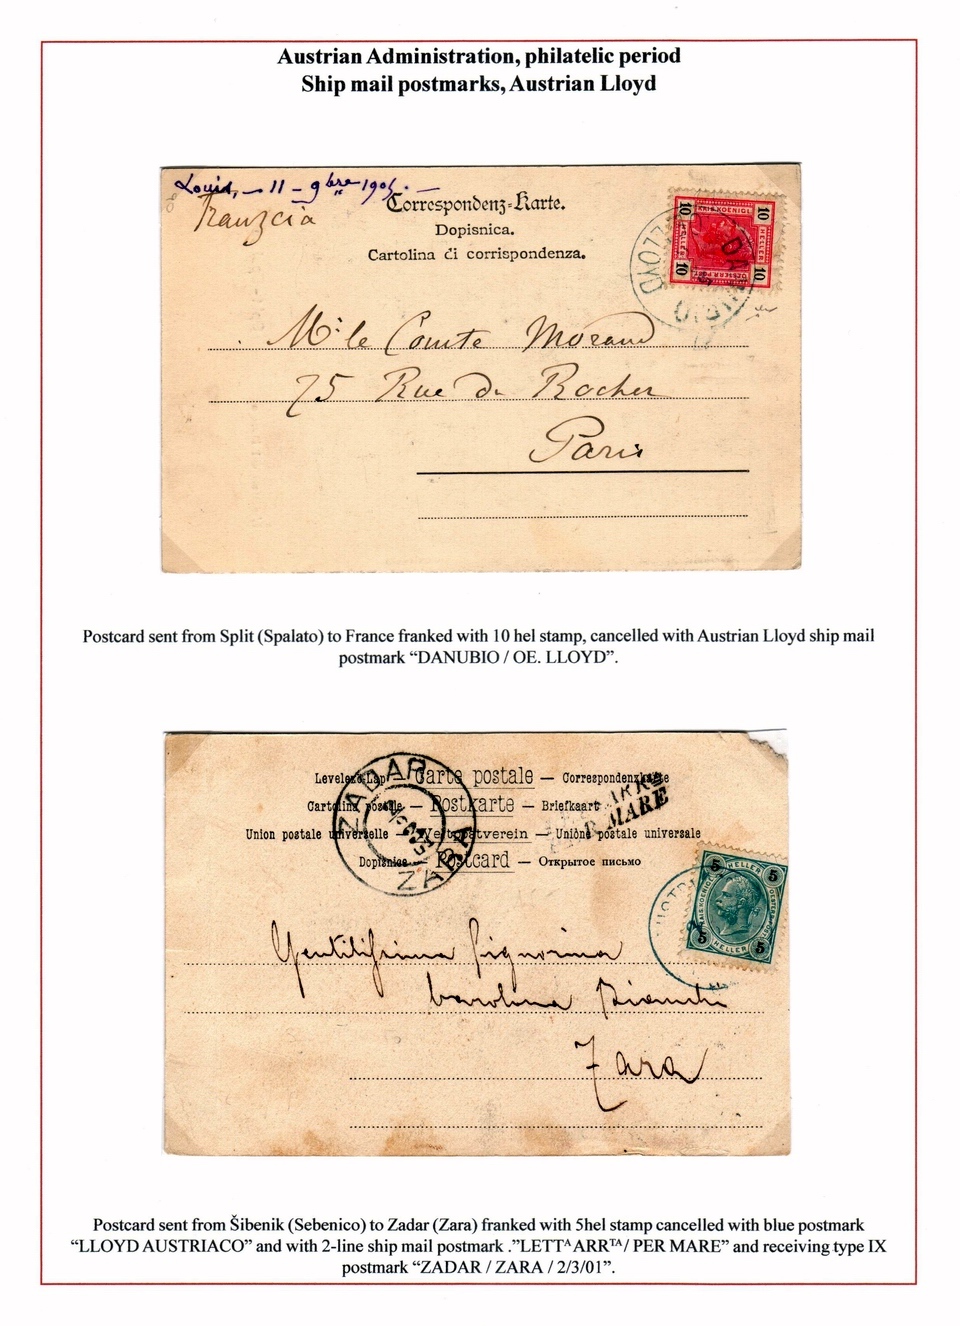 Austrian Administration, philatelic period
Ship mail postmarks, Austrian Lloyd
Louis, – 11 – 9bre 1905. –
Franzcia
Correspondenz-Karte.
Dopisnica.
Cartolina di corrispondenza.
10 10
KAIS. KOENIGL
HELLER HELLER
OESTERR. POST
10 10
LLOYD
Mr le Comte Morand
75 Rue du Rocher
Paris
Postcard sent from Split (Spalato) to France franked with 10 hel stamp, cancelled with Austrian Lloyd ship mail
postmark “DANUBIO / OE. LLOYD”.
Levelező-Lap — Carte postale — Correspondenzkarte
Cartolina postale — Postkarte — Briefkaart
Union postale universelle — Weltpostverein — Unióne postale universale
Dopisnice — Postcard — Открытое письмо
ZADAR
ZARA
PER MARE
5 HELLER 5
5 HELLER 5
Gentilissima Signorina
Carolina Bianchi
Zara
Postcard sent from Šibenik (Sebenico) to Zadar (Zara) franked with 5hel stamp cancelled with blue postmark
“LLOYD AUSTRIACO” and with 2-line ship mail postmark .”LETTᴬ ARRᵀᴬ/ PER MARE” and receiving type IX
postmark “ZADAR / ZARA / 2/3/01”.